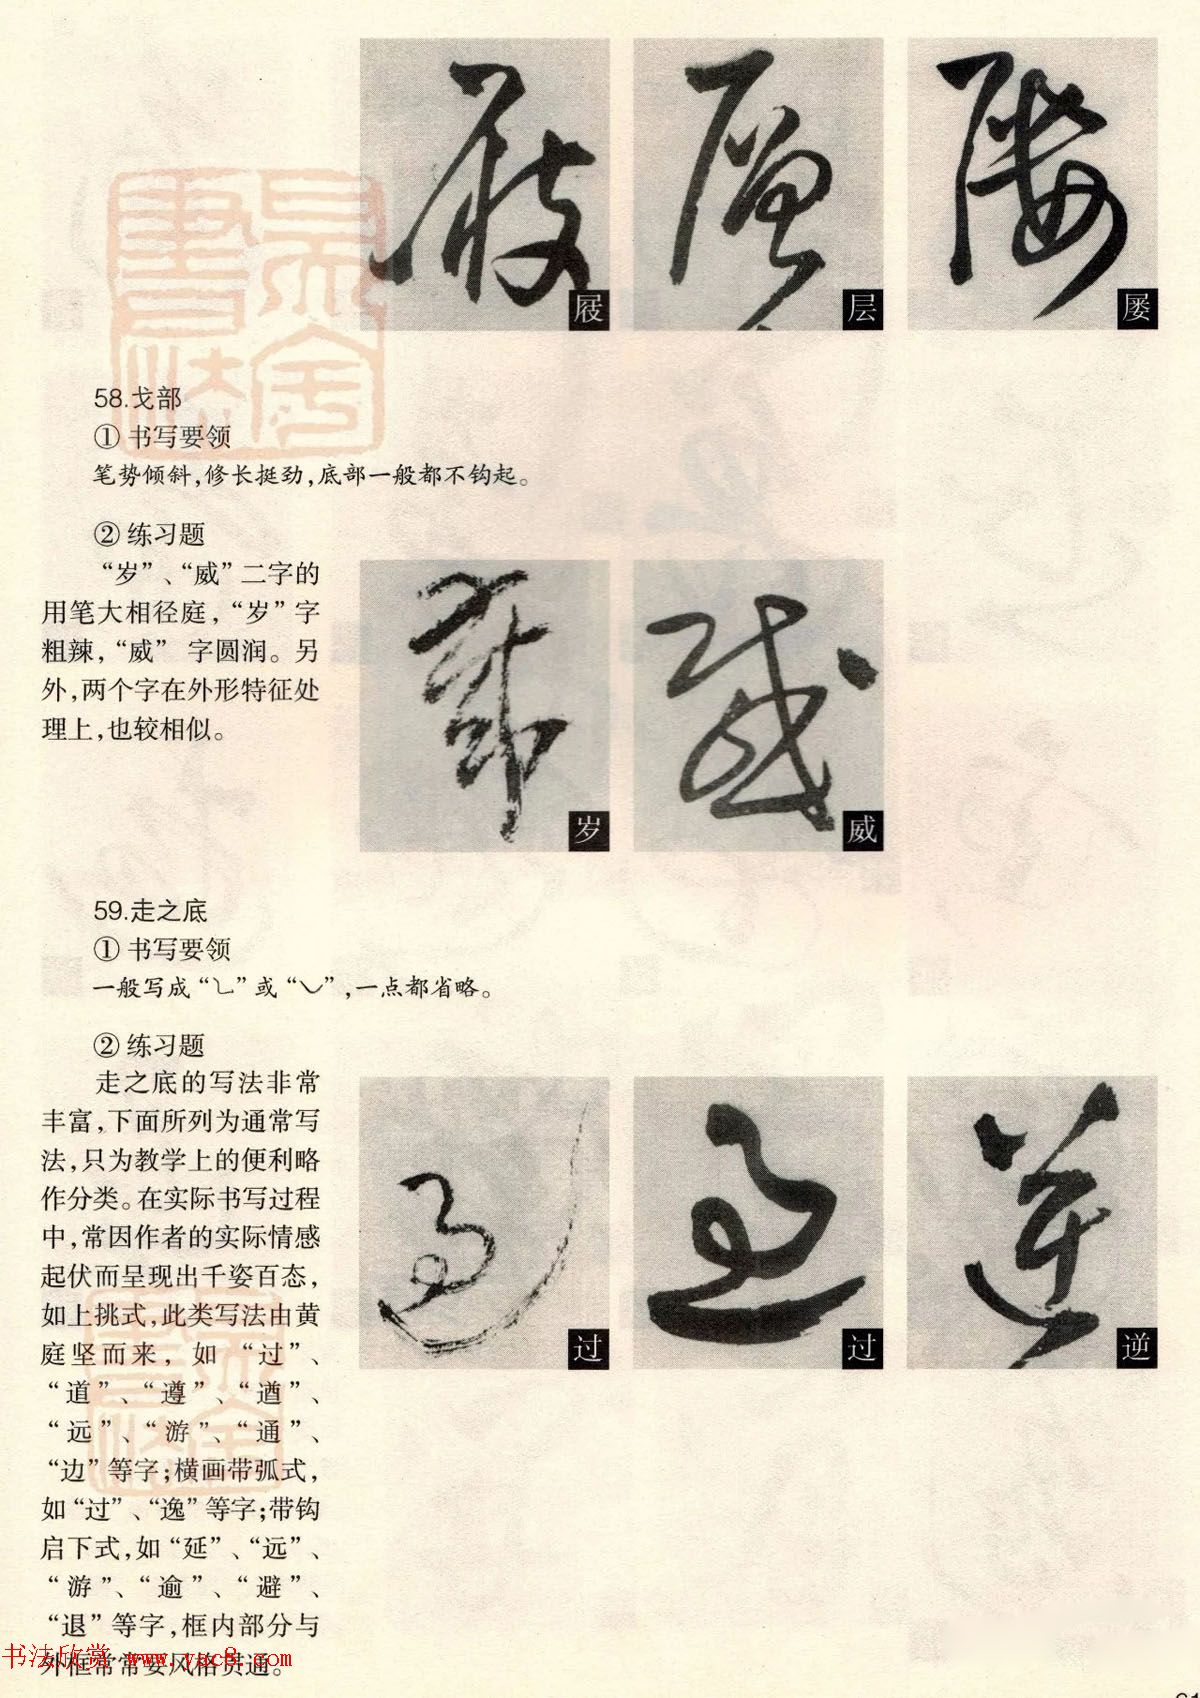 屐
层
屡
58.戈部
① 书写要领
笔势倾斜,修长挺劲,底部一般都不钩起。
② 练习题
“岁”、“威”二字的
用笔大相径庭,“岁”字
粗辣,“威” 字圆润。另
外,两个字在外形特征处
理上,也较相似。
岁
威
59.走之底
① 书写要领
一般写成“㇄”或“㇃”,一点都省略。
② 练习题
走之底的写法非常
丰富,下面所列为通常写
法,只为教学上的便利略
作分类。在实际书写过程
中,常因作者的实际情感
起伏而呈现出千姿百态,
如上挑式,此类写法由黄
庭坚而来,如“过”、
“道”、“遵”、“遒”、
“远”、“游”、“通”、
“边”等字;横画带弧式,
如“过”、“逸”等字;带钩
启下式,如“延”、“远”、
“游”、“逾”、“避”、
“退”等字,框内部分与
外框常常要风格贯通。
过
过
逆
书法欣赏 www.yac8.com